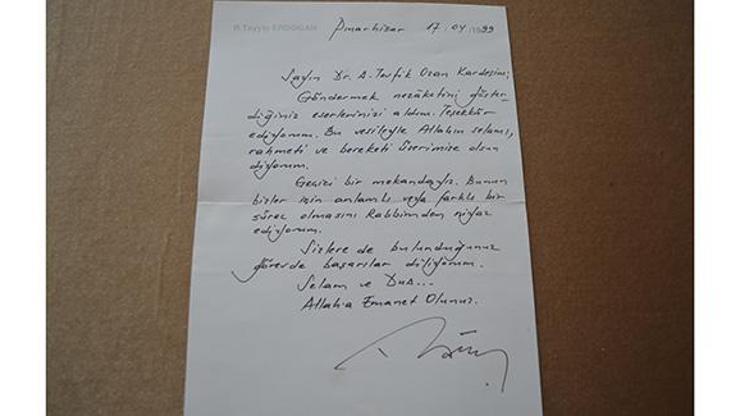 R.Tayyip ERDOĞAN Pınarhisar 17/04/1999
Sayın Dr. A. Tevfik Ozan Kardeşim;
Göndermek nezâketini göster-
diğiniz eserlerinizi aldım. Teşekkür
ediyorum. Bu vesileyle Allahın selamı,
rahmeti ve bereketi üzerimize olsun
diyorum.
Geçici bir mekandayız. Bunun
bizler için anlamlı veya farklı bir
süreç olmasını Rabbimden niyaz
ediyorum.
Sizlere de bulunduğunuz
görevde başarılar diliyorum.
Selam ve Dua...
Allah'a Emanet Olunuz.